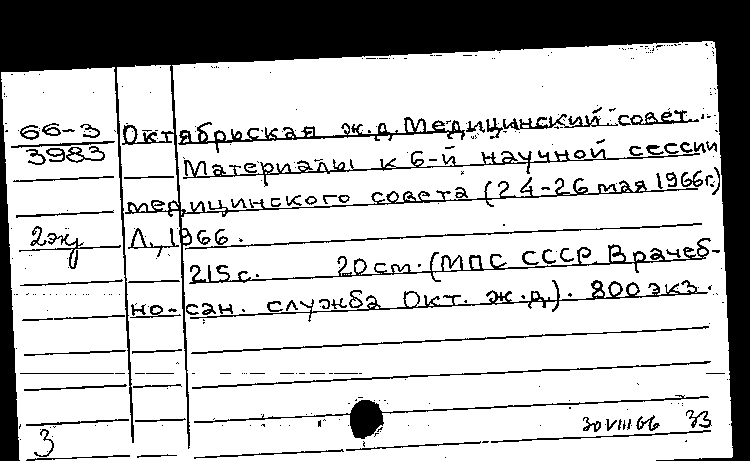 66-3 Октябрьская ж.д. Медицинский совет.
3983 Материалы к 6-й научной сессии
медицинского совета (24-26 мая 1966г.)
2экз Л., 1966.
215с. 20см. (МПС СССР. Врачеб-
но-сан. служба Окт. ж.д.). 800 экз.
30 VIII 66 33
3